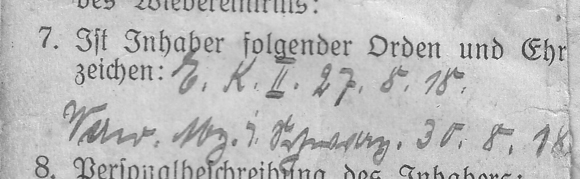 des Wiedereintritts:
7. Ist Inhaber folgender Orden und Ehr
zeichen: E. K. II. 27. 8. 18.
Verw. Abz. i. Schwarz. 30. 8. 18
8. Personalbeschreibung des Inhabers: